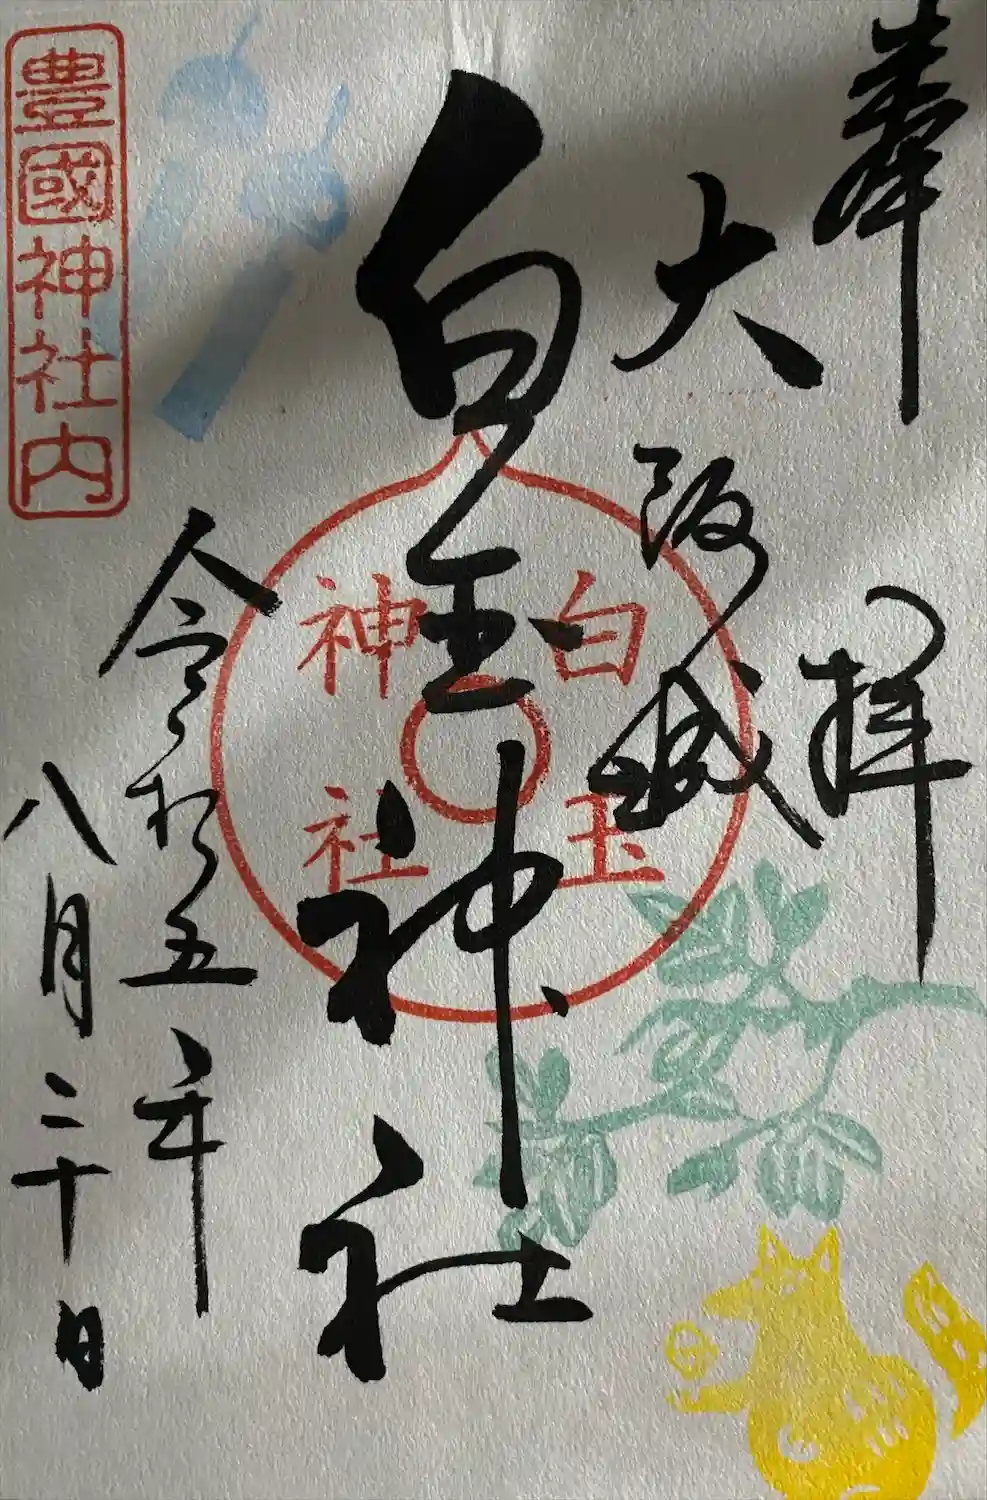 奉拝
大阪城
白玉神社
白玉
神社
令和五年
八月二十日
豊國神社内